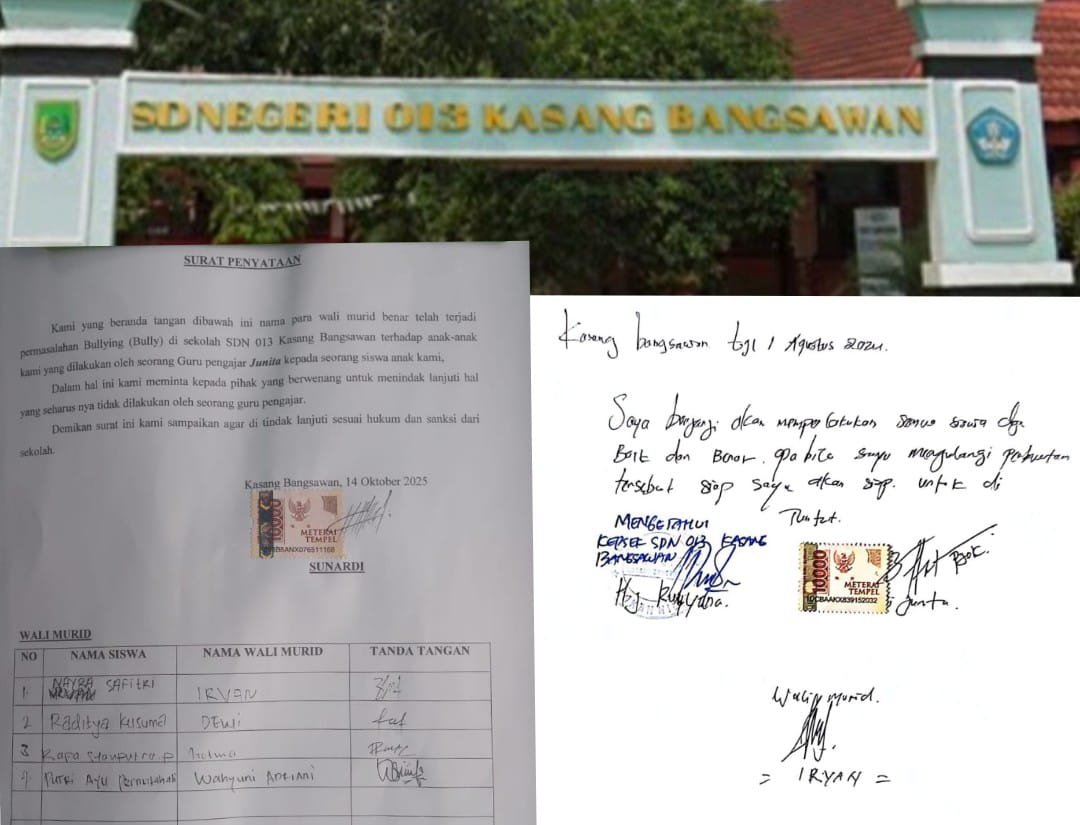 SD NEGERI 013 KASANG BANGSAWAN
SURAT PENYATAAN
Kami yang beranda tangan dibawah ini nama para wali murid benar telah terjadi
permasalahan Bullying (Bully) di sekolah SDN 013 Kasang Bangsawan terhadap anak-anak
kami yang dilakukan oleh seorang Guru pengajar Junita kepada seorang siswa anak kami,
Dalam hal ini kami meminta kepada pihak yang berwenang untuk menindak lanjuti hal
yang seharus nya tidak dilakukan oleh seorang guru pengajar.
Demikan surat ini kami sampaikan agar di tindak lanjuti sesuai hukum dan sanksi dari
sekolah.
Kasang Bangsawan, 14 Oktober 2025
10000
METERAI
TEMPEL
SUNARDI
WALI MURID
NO NAMA SISWA NAMA WALI MURID TANDA TANGAN
1. NAYRA SAFITRI IRVAN
2 Raditya Kusuma DEWI
3
4. Putri Ayu Wahyuni Andiani
Kasang bangsawan tgl 1 Agustus 2024.
Saya berjanji akan memperlakukan semua siswa dgn
Baik dan Benar. apa bila saya mengulangi perbuatan
tersebut siap saya akan siap untuk di
Tuntut.
MENGETAHUI
KEPSEK SDN 013 KASANG
BANGSAWAN
10000
METERAI
TEMPEL
10CBAAKX839152032
Junita.
Wali murid.
= IRYAN =